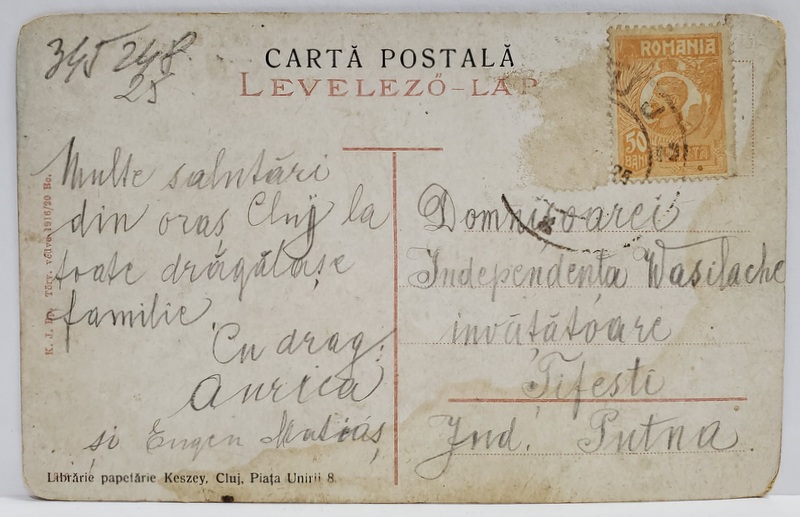 345 248
25
CARTĂ POSTALĂ
LEVELEZŐ-LAP
ROMANIA
50
BANI
Multe salutări
din oraș Cluj la
toate drăgălașe
familie.
Cu drag:
Aurica
și Eugen
Domnișoarei
Independenta Wasilache
invătătoare
Țifesti
Jud. Putna
Librărie papetărie Keszey, Cluj, Piața Unirii 8.
K. J. Törv. védve 1916/20